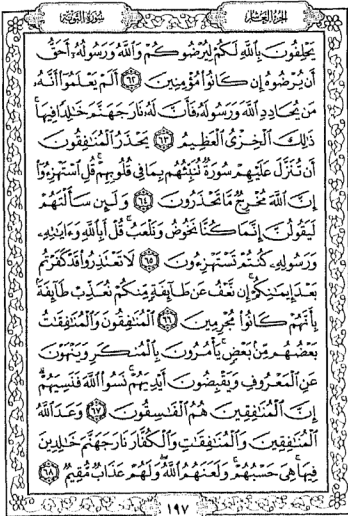 الجزء العاشر
سورة التوبة
يَحْلِفُونَ بِاللَّهِ لَكُمْ لِيُرْضُوكُمْ وَاللَّهُ وَرَسُولُهُ أَحَقُّ
أَن يُرْضُوهُ إِن كَانُوا مُؤْمِنِينَ ٦٢ أَلَمْ يَعْلَمُوا أَنَّهُ
مَن يُحَادِدِ اللَّهَ وَرَسُولَهُ فَأَنَّ لَهُ نَارَ جَهَنَّمَ خَالِدًا فِيهَا
ذَٰلِكَ الْخِزْيُ الْعَظِيمُ ٦٣ يَحْذَرُ الْمُنَافِقُونَ
أَن تُنَزَّلَ عَلَيْهِمْ سُورَةٌ تُنَبِّئُهُم بِمَا فِي قُلُوبِهِمْ قُلِ اسْتَهْزِءُوا
إِنَّ اللَّهَ مُخْرِجٌ مَّا تَحْذَرُونَ ٦٤ وَلَئِن سَأَلْتَهُمْ
لَيَقُولُنَّ إِنَّمَا كُنَّا نَخُوضُ وَنَلْعَبُ قُلْ أَبِاللَّهِ وَءَايَاتِهِ
وَرَسُولِهِ كُنتُمْ تَسْتَهْزِءُونَ ٦٥ لَا تَعْتَذِرُوا قَدْ كَفَرْتُم
بَعْدَ إِيمَانِكُمْ إِن نَّعْفُ عَن طَائِفَةٍ مِّنكُمْ نُعَذِّبْ طَائِفَةً
بِأَنَّهُمْ كَانُوا مُجْرِمِينَ ٦٦ الْمُنَافِقُونَ وَالْمُنَافِقَاتُ
بَعْضُهُم مِّن بَعْضٍ يَأْمُرُونَ بِالْمُنكَرِ وَيَنْهَوْنَ
عَنِ الْمَعْرُوفِ وَيَقْبِضُونَ أَيْدِيَهُمْ نَسُوا اللَّهَ فَنَسِيَهُمْ
إِنَّ الْمُنَافِقِينَ هُمُ الْفَاسِقُونَ ٦٧ وَعَدَ اللَّهُ
الْمُنَافِقِينَ وَالْمُنَافِقَاتِ وَالْكُفَّارَ نَارَ جَهَنَّمَ خَالِدِينَ
فِيهَا هِيَ حَسْبُهُمْ وَلَعَنَهُمُ اللَّهُ وَلَهُمْ عَذَابٌ مُّقِيمٌ ٦٨
١٩٧